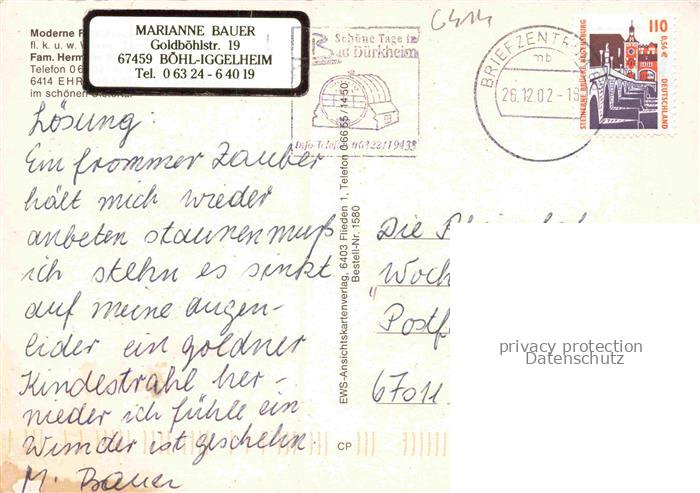 Moderne
fl. k. u. w.
Fam. Herm
Telefon 0 6
6414 EHR
im schönen
MARIANNE BAUER
Goldböhlstr. 19
67459 BÖHL-IGGELHEIM
Tel. 0 63 24 - 6 40 19
Schöne Tage in
Bad Dürkheim
Info-Telefon 06322/19433
BRIEFZENT
mb
26.12.02-18
110
0,56 €
STEINERNE BRÜCKE REGENSBURG
DEUTSCHLAND
Lösung:
Ein frommer Zauber
hält mich wieder
anbeten staunen muß
ich stehn es sinkt
auf meine augen-
lider ein goldner
Kindestrahl her-
nieder ich fühle ein
Wunder ist geschehn.
M. Bauer
EWS-Ansichtskartenverlag, 6403 Flieden 1, Telefon 0 66 55 / 14 50
Bestell-Nr. 1580
CP
Die Rheinpfal
"Woch
Postf
67011
privacy protection
Datenschutz